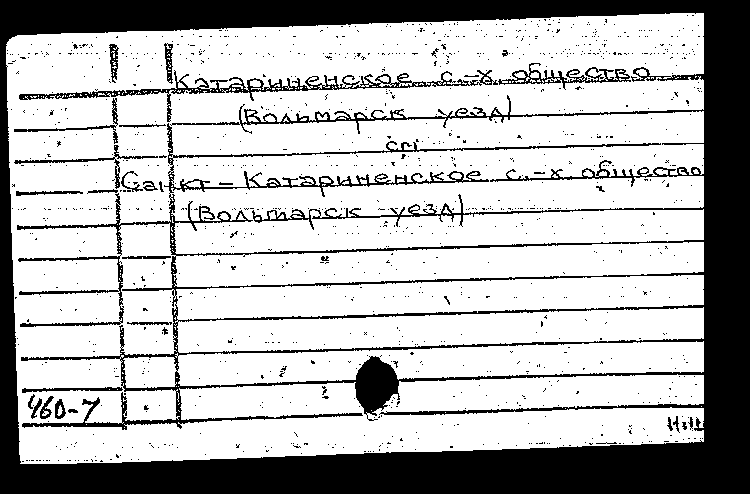 Катариненское с.-х. общество
(Вольмарск уезд)
см.
Санкт-Катариненское с.-х общество
(Вольмарск уезд)
460-7